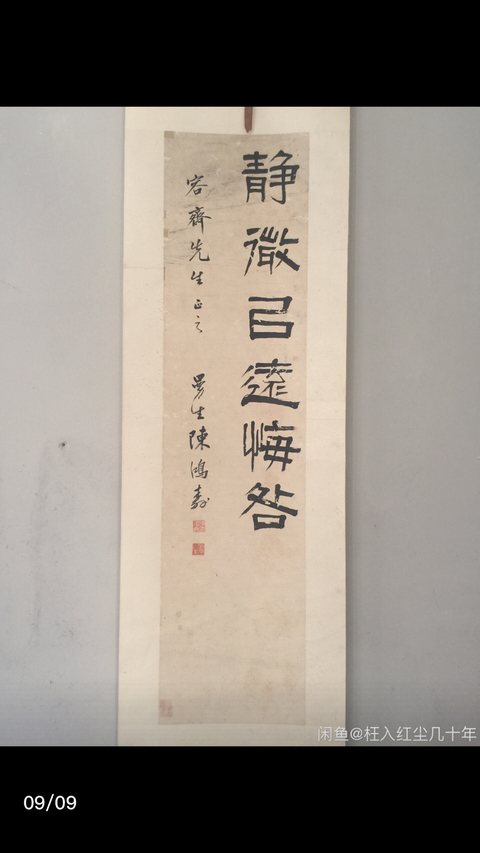 静微已遠悔咎
容齋先生正之 曼生陳鴻壽
闲鱼@枉入红尘几十年
09/09